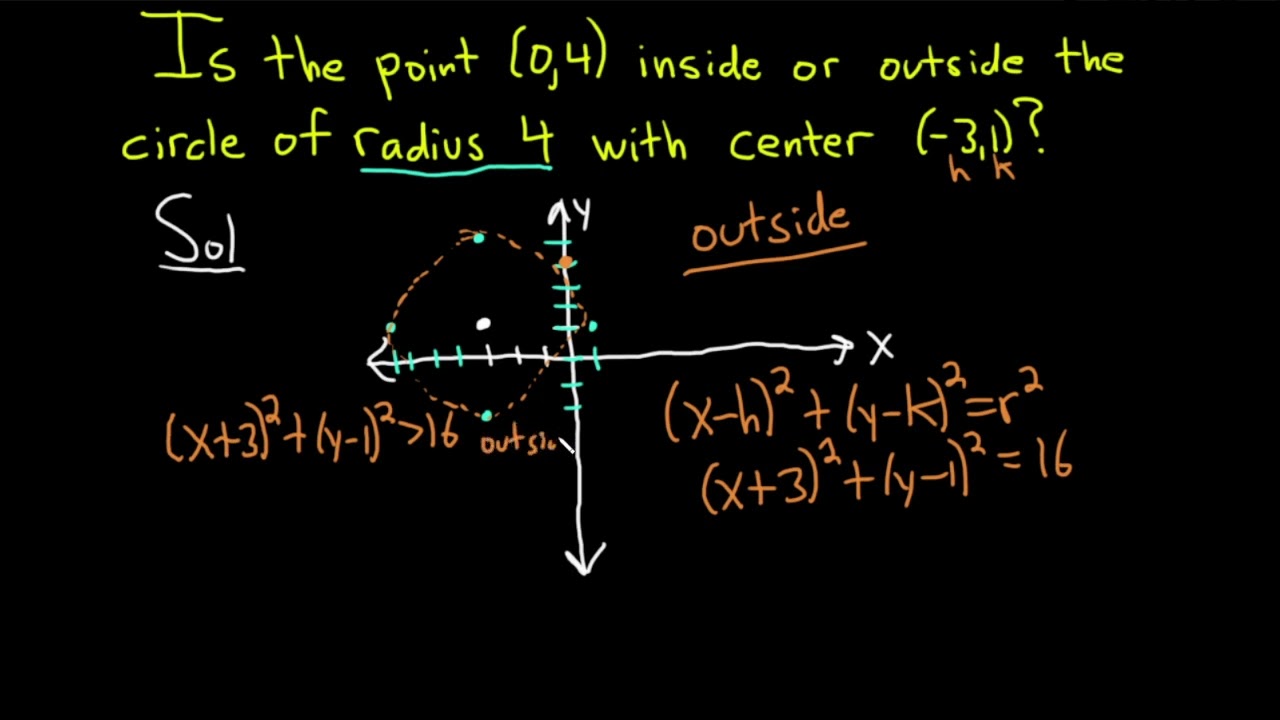 Is the point (0,4) inside or outside the
circle of radius 4 with center (-3,1)?
h k
Sol
y
outside
x
(x-h)²+(y-k)²=r²
(x+3)²+(y-1)²>16 outsi
(x+3)²+(y-1)²=16